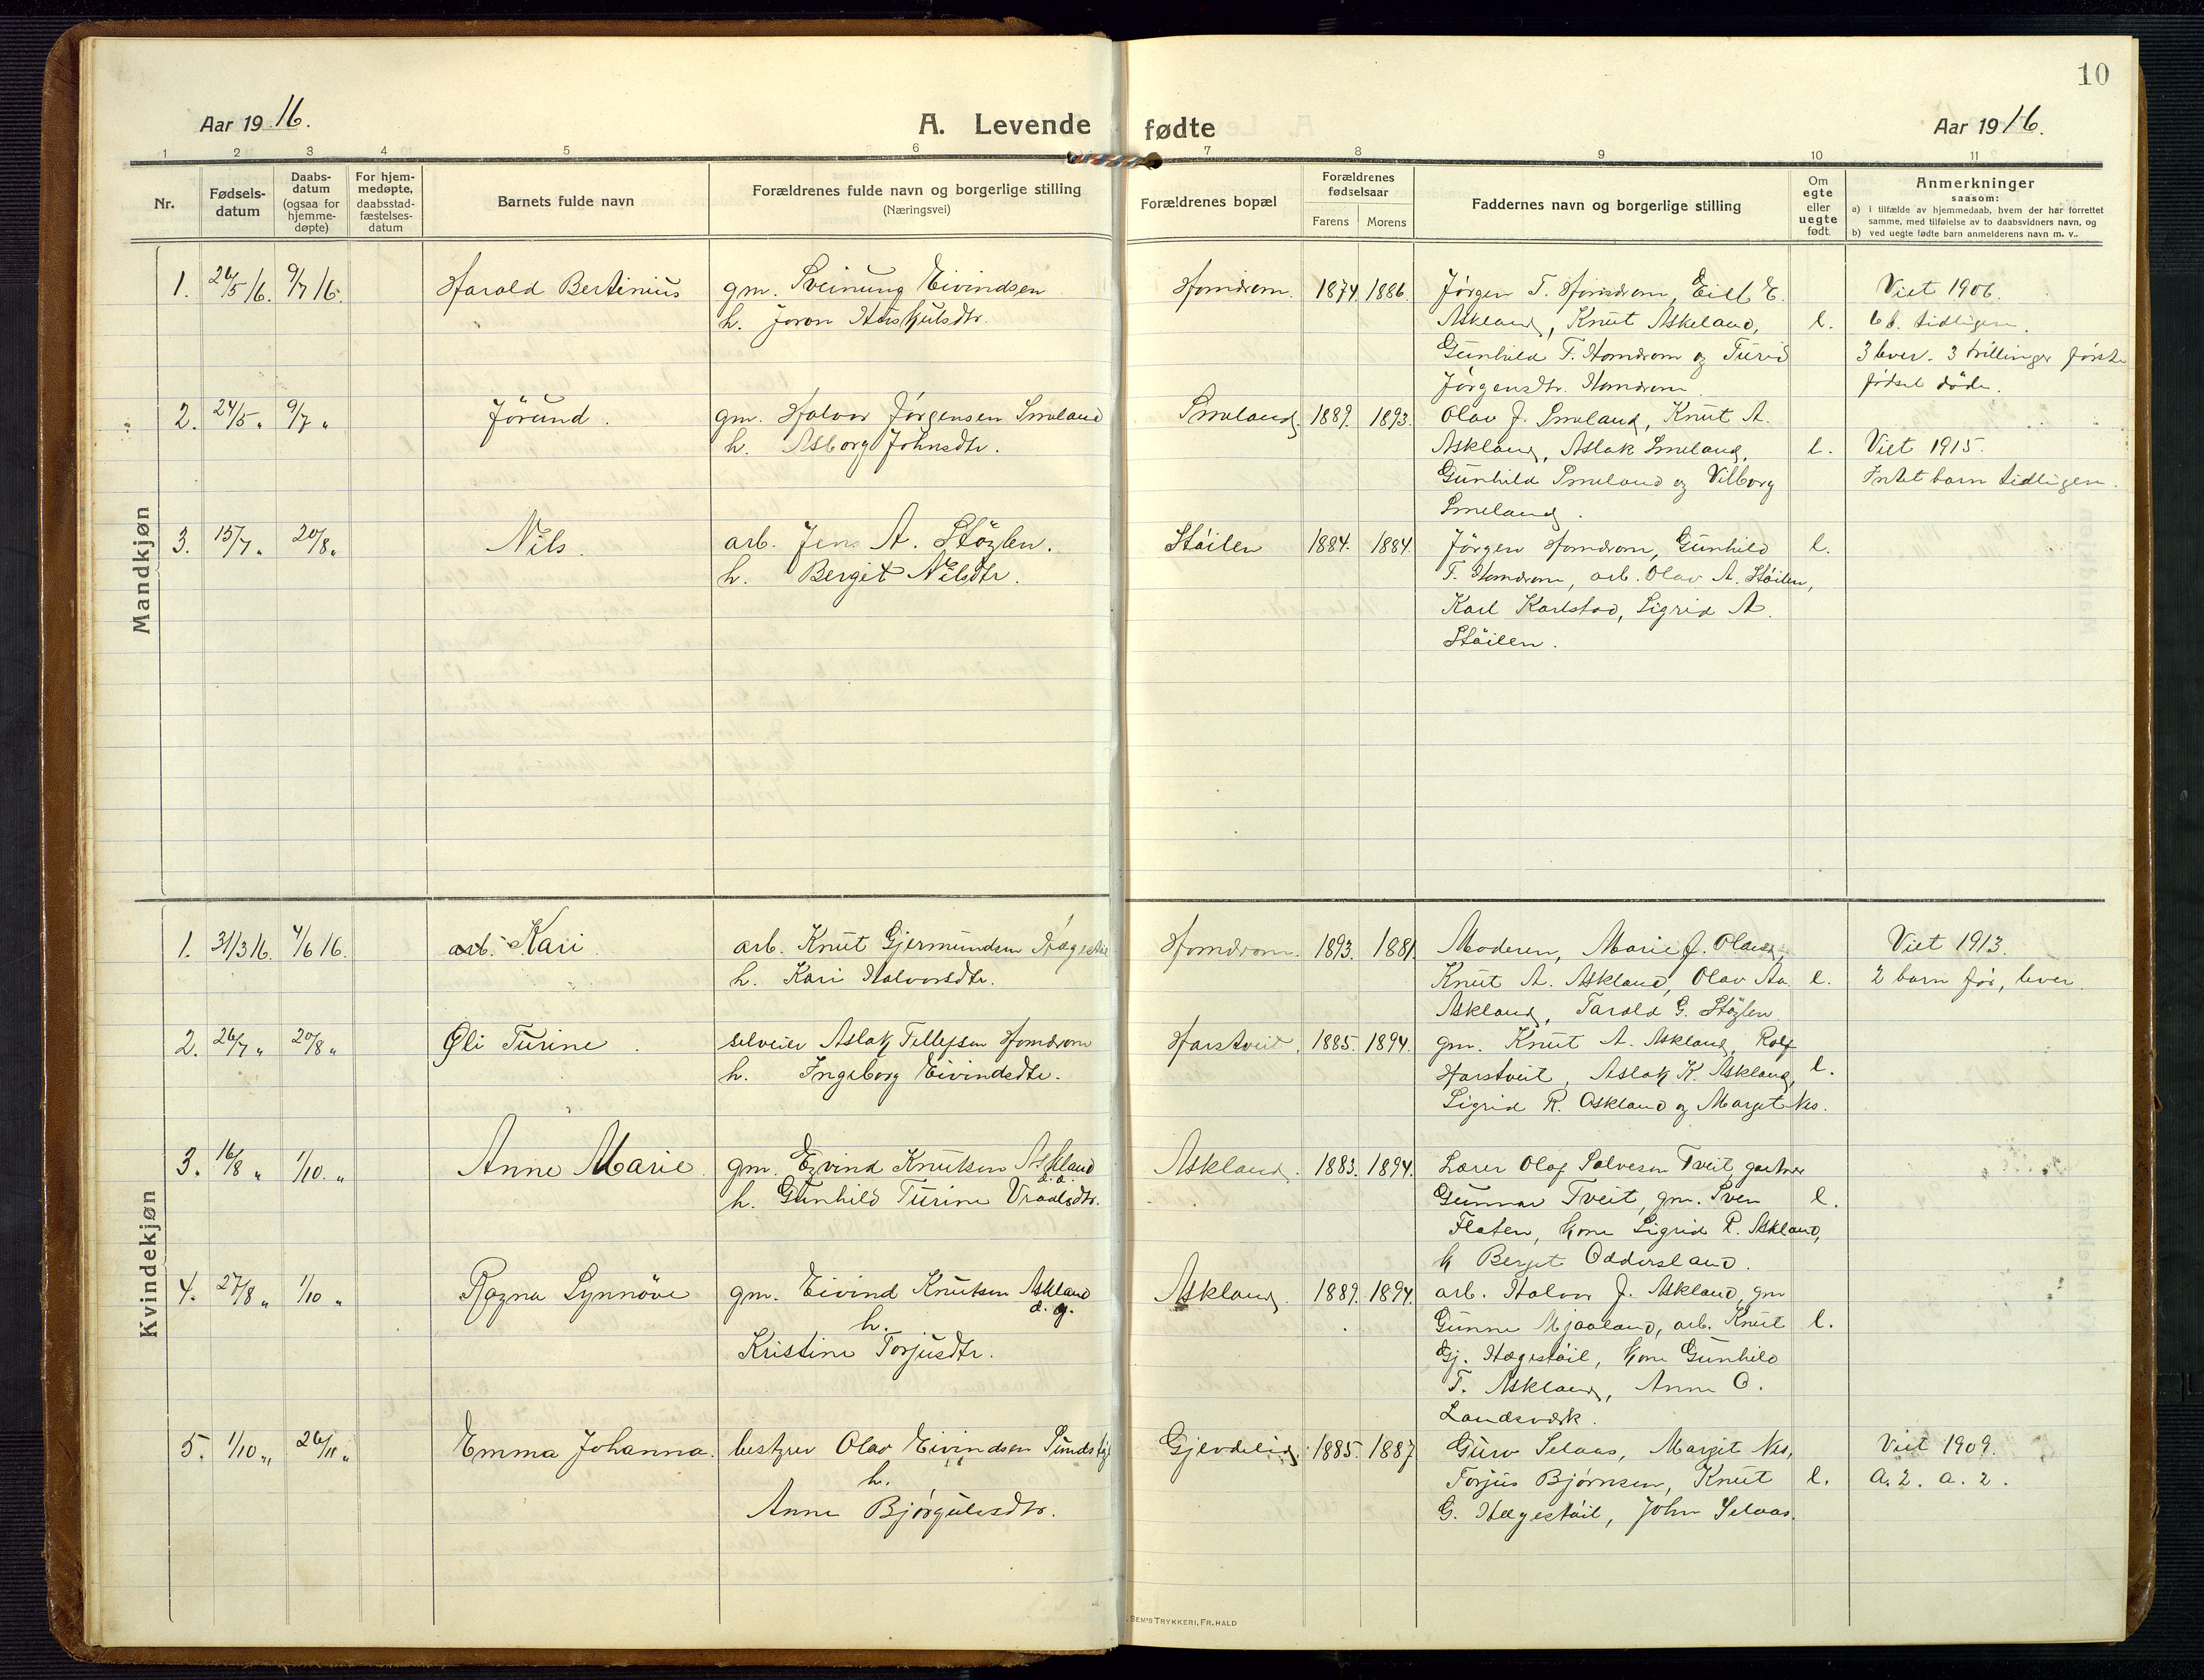 10
Aar 1916.
A. Levende fødte
Aar 1916.
1 2 3 4 5 6 7 8 9 10 11
Nr.
Fødsels-
datum
Daabs-
datum
(ogsaa for
hjemme-
døpte)
For hjem-
medøpte,
daabsstad-
fæstelses-
datum
Barnets fulde navn
Forældrenes fulde navn og borgerlige stilling
(Næringsvei)
Forældrenes bopæl
Forældrenes
fødselsaar
Farens Morens
Faddernes navn og borgerlige stilling
Om
egte
eller
uegte
født.
Anmerkninger
saasom:
a) i tilfælde av hjemmedaab, hvem der har forrettet
samme, med tilføielse av to daabsvidners navn, og
b) ved uegte fødte barn anmelderens navn m. v..
Mandkjøn
1. 26/5 16. 9/7 16. Harald Bertinius gm. Sveinung Eivindsen Homdrom. 1874. 1886. Jørgen T. Homdrom, E. Viet 1906.
h. Joron Askland, Knut Askeland, l. 6 b. tidligere.
Gunhild T. Homdrom og Turid 3 lever. 3 trillinger første
Jørgensdtr. Homdrom fødsel døde.
2. 24/5 " 9/7 " Jörund. gm. Halvor Jørgensen Smeland Smeland. 1889. 1893. Olav J. Smeland, Knut A.
h. Asborg Johnsdtr. Askland, Aslak Smeland, l. Viet 1915.
Gunhild Smeland og Vilborg Intet barn tidligere.
Smeland.
3. 15/7 " 20/8 " Nils. arb. Jens A. Stöylen. Stöilen 1884. 1884. Jörgen Homdrom, Gunhild l.
h. Bergit Nilsdtr. T. Homdrom, arb. Olav A. Stöilen,
Karl Karlstad, Sigrid A.
Stöilen.
Kvindekjøn
1. 31/3 16. 4/6 16. arb. Kari. arb. Knut Gjermundsen Homdrom. 1893. 1881. Moderen, Marie J. Viet 1913.
h. Kari Halvorsdtr. Knut A. Askland, Olav Aa. l. 2 barn før, lever.
Askland, Tarald G. Stöylen.
2. 26/7 " 20/8 " Oli Turine. selveier Aslak Tellefsen Homdrom Harstveit. 1885. 1894. gm. Knut A. Askland, Rolf
h. Ingeborg Eivindsdtr. Harstveit, Aslak K. Askland, l.
Sigrid R. Askland og Margit Nes.
3. 16/8 " 1/10. " Anne Marie. gm. Eyvind Knutsen Askland d. æ. Askland. 1883. 1894. Lærer Olaf Salvesen Tveit, gartner
h. Gunhild Turine Vraalsdtr. Gunnar Tveit, gm. Sven l.
Flaten, kone Sigrid R. Askland,
k Berget Oddersland.
4. 27/8 " 1/10 " Ragna Synnöve gm. Eivind Knutsen Askland d. y. Askland. 1889. 1894. arb. Halvor J. Askland, gm
h. Gunne Mjaaland, arb. Knut l.
Kristine Torjusdtr. Gj. Hægestöil, kone Gunhild
T. Askland, Anne O.
Landsverk.
5. 1/10 " 26/11 " Emma Johanna. bestyrer Olav Eivindsen Gjevdelid. 1885. 1887 Guro Selaas, Margit Nes, Viet 1909.
h. Torjus Bjørnsen, Knut l. a. 2. a. 2.
Anne Bjørgulvsdtr. G. Hægestöil, John Selaas.
SEM'S TRYKKERI, FR. HALD